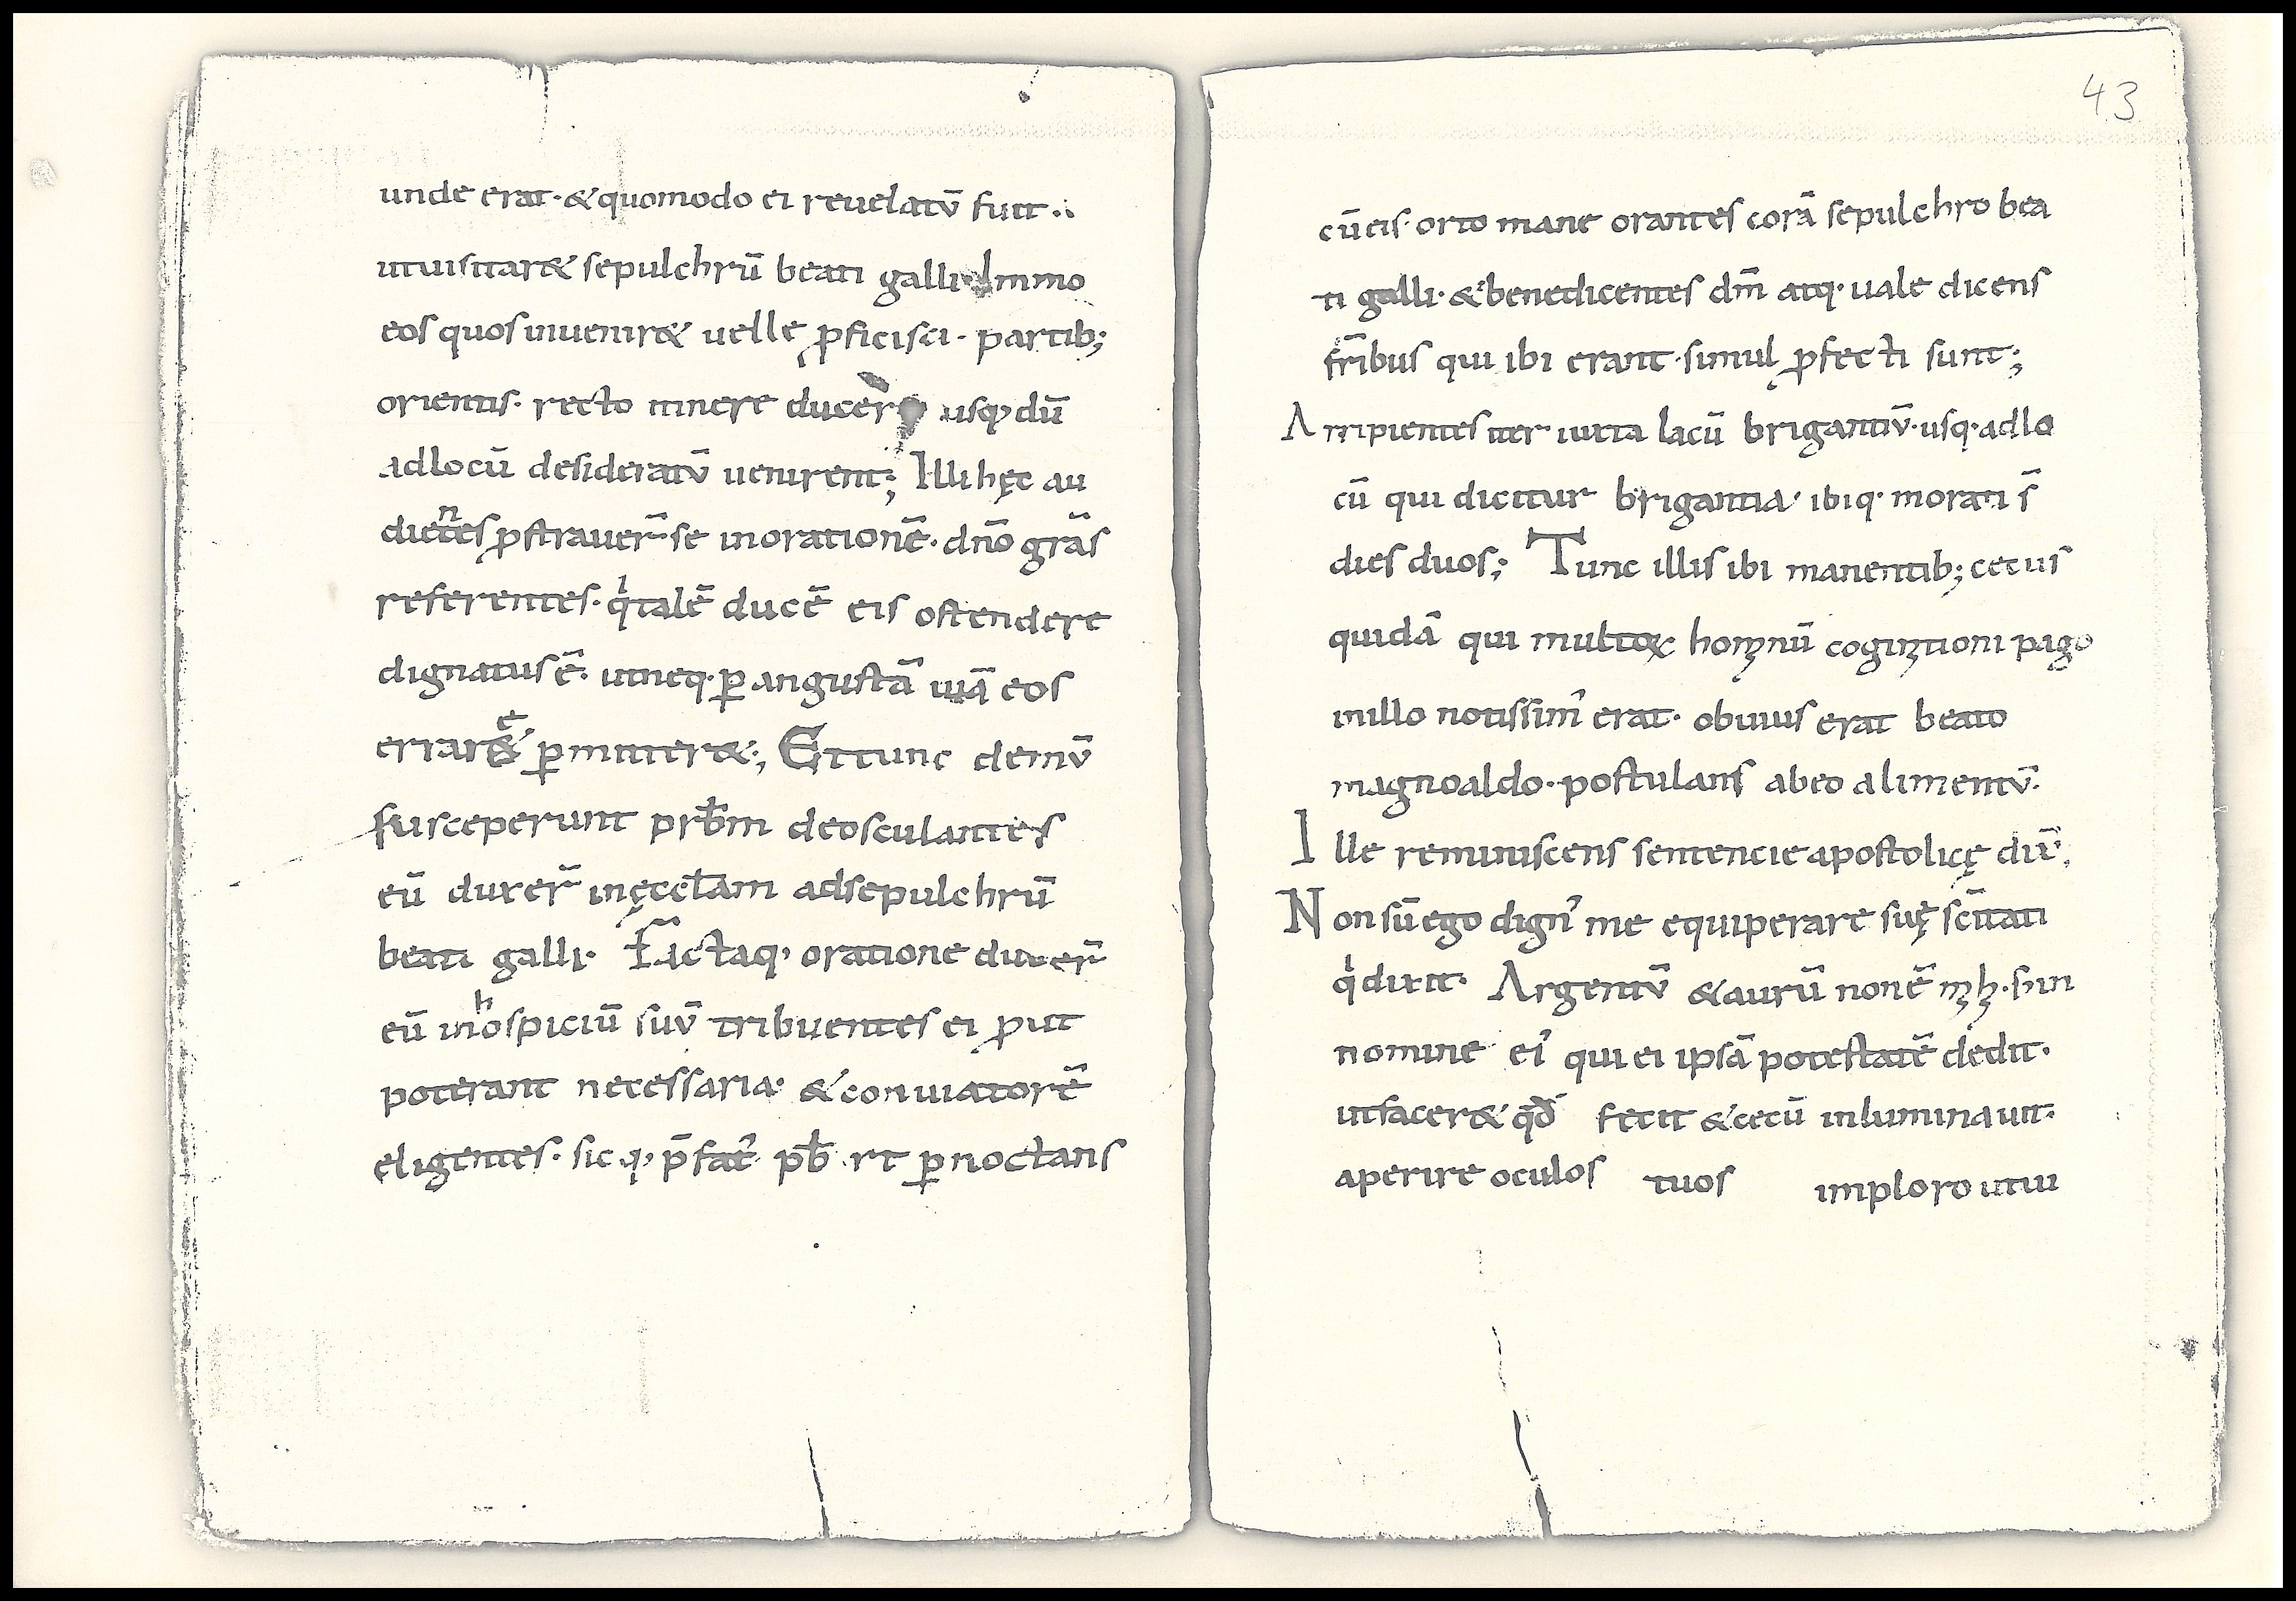 unde erat· & quomodo ei reuelatū fuit·.
utuisitar& sepulchrū beati galli· Immo
eos quos inuenir& uelle ꝓficisci· partib;
orientis· recto itinere ducer̄ usq; dū
adlocū desideratū uenirent; Illi hęc au
dietes ꝓstrauer̄ se inorationē· dn̄o gr̄as
referentes· qi talē ducē eis ostendere
dignatus ē· utneq· ꝑ angustā uiā eos
errar& ꝑmitter&; Et tunc demū
susceperunt prb̄m deosculantes
eū duxer̄ inęccl̄am adsepulchrū
beati galli· Factaq; oratione duxer̄
eū inhospiciū suū tribuentes ei ꝓut
poterant necessaria· & conuiatorē
eligentes· sic q; p̄fat' pb̄rt ꝑnoctans
43
cū eis· orto mane orantes corā sepulchro bea
ti galli· & benedicentes dm̄ atq· uale dicens
fr̄ibus qui ibi erant· simul ꝓfecti sunt;
Arripientes iter iuxta lacū brigantiū· usq· adlo
cū qui dicitur brigantia· ibiq· morati s̄
dies duos; Tunc illis ibi manentib; cecus
quidā qui multoꝝ hominū cognitioni pago
inillo notissim' erat· obuius erat beato
magnoaldo· postulans abeo alimentū·
Ille reminiscens sentencie apostolicę dix̄;
Non sū ego dign' me equiperare suę sc̄itati
qi dixit· Argentū & aurū non ē mihi· sꝫ in
nomine ei' qui ei ipsā potestatē dedit·
utfacer& qd̄ fecit & cecū inluminauit·
aperire oculos tuos imploro utui